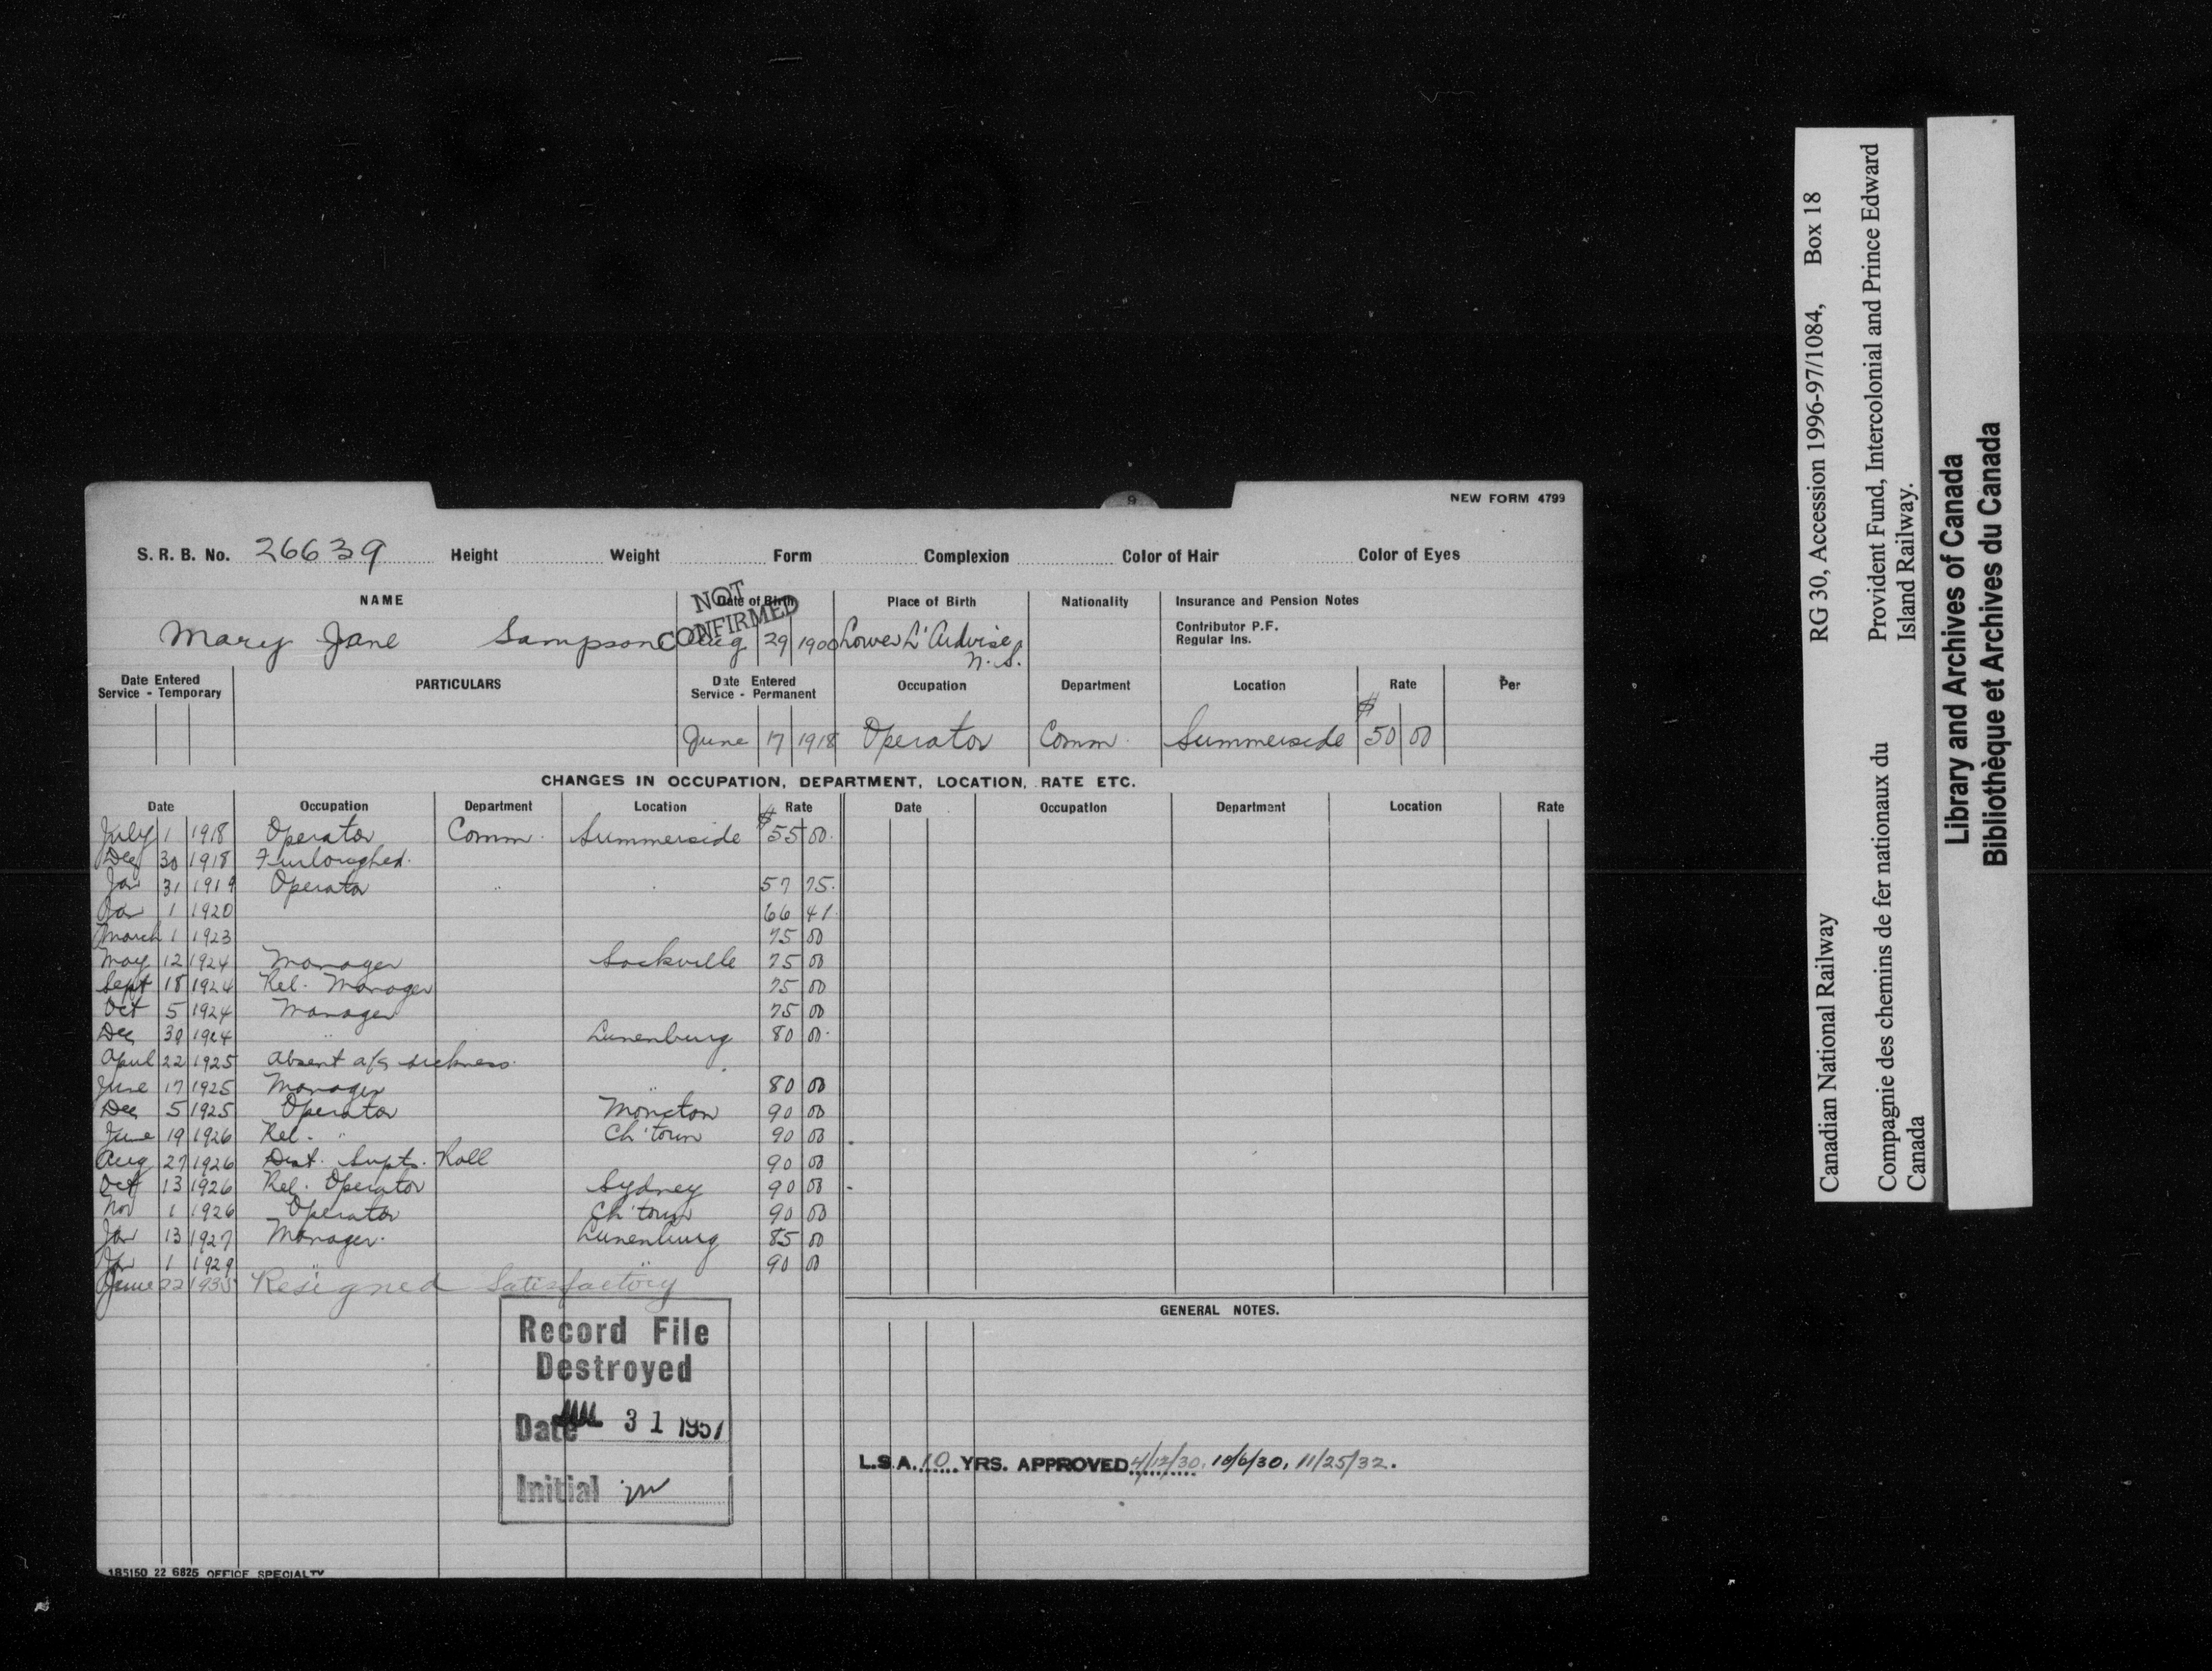 9
NEW FORM 4799
S. R. B. No. 26639 Height Weight Form Complexion Color of Hair Color of Eyes
NAME Date of Birth Place of Birth Nationality Insurance and Pension Notes
NOT CONFIRMED
Contributor P.F.
Regular Ins.
Mary Jane Sampson Aug 29 1900 Lower L'Ardoise N.S.
Date Entered Service - Temporary PARTICULARS Date Entered Service - Permanent Occupation Department Location Rate Per
June 17 1918 Operator Comm. Summerside $ 50 00
CHANGES IN OCCUPATION, DEPARTMENT, LOCATION, RATE ETC.
Date Occupation Department Location Rate Date Occupation Department Location Rate
July 1 1918 Operator Comm. Summerside $ 55 00
Dec 30 1918 Furloughed.
Jan 31 1919 Operator " " 57 75
Jan 1 1920 66 41
March 1 1923 75 00
May 12 1924 Manager Sackville 75 00
Sept 18 1924 Rel. Manager 75 00
Oct 5 1924 Manager 75 00
Dec 30 1924 " Lunenburg 80 00
April 22 1925 Absent a/c sickness.
June 17 1925 Manager " 80 00
Dec 5 1925 Operator Moncton 90 00
June 19 1926 Rel. " Ch'town 90 00
Aug 27 1926 Dist. Supts. Roll 90 00
Oct 13 1926 Rel. Operator Sydney 90 00
Nov 1 1926 Operator Ch'town 90 00
Jan 13 1927 Manager. Lunenburg 85 00
Jan 1 1929 " " 90 00
June 22 1935 Resigned Satisfactory
GENERAL NOTES.
Record File
Destroyed
Date 31 1957
Initial
L.S.A. 10 YRS. APPROVED 4/12/30, 10/6/30, 11/25/32.
185150 22 6825 OFFICE SPECIALTY
Canadian National Railway RG 30, Accession 1996-97/1084, Box 18
Compagnie des chemins de fer nationaux du Canada
Provident Fund, Intercolonial and Prince Edward Island Railway.
Library and Archives of Canada
Bibliothèque et Archives du Canada